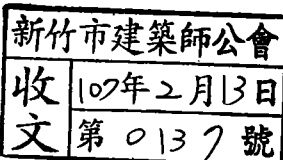 新竹市建築師公會
收文
107年2月13日
第0137號